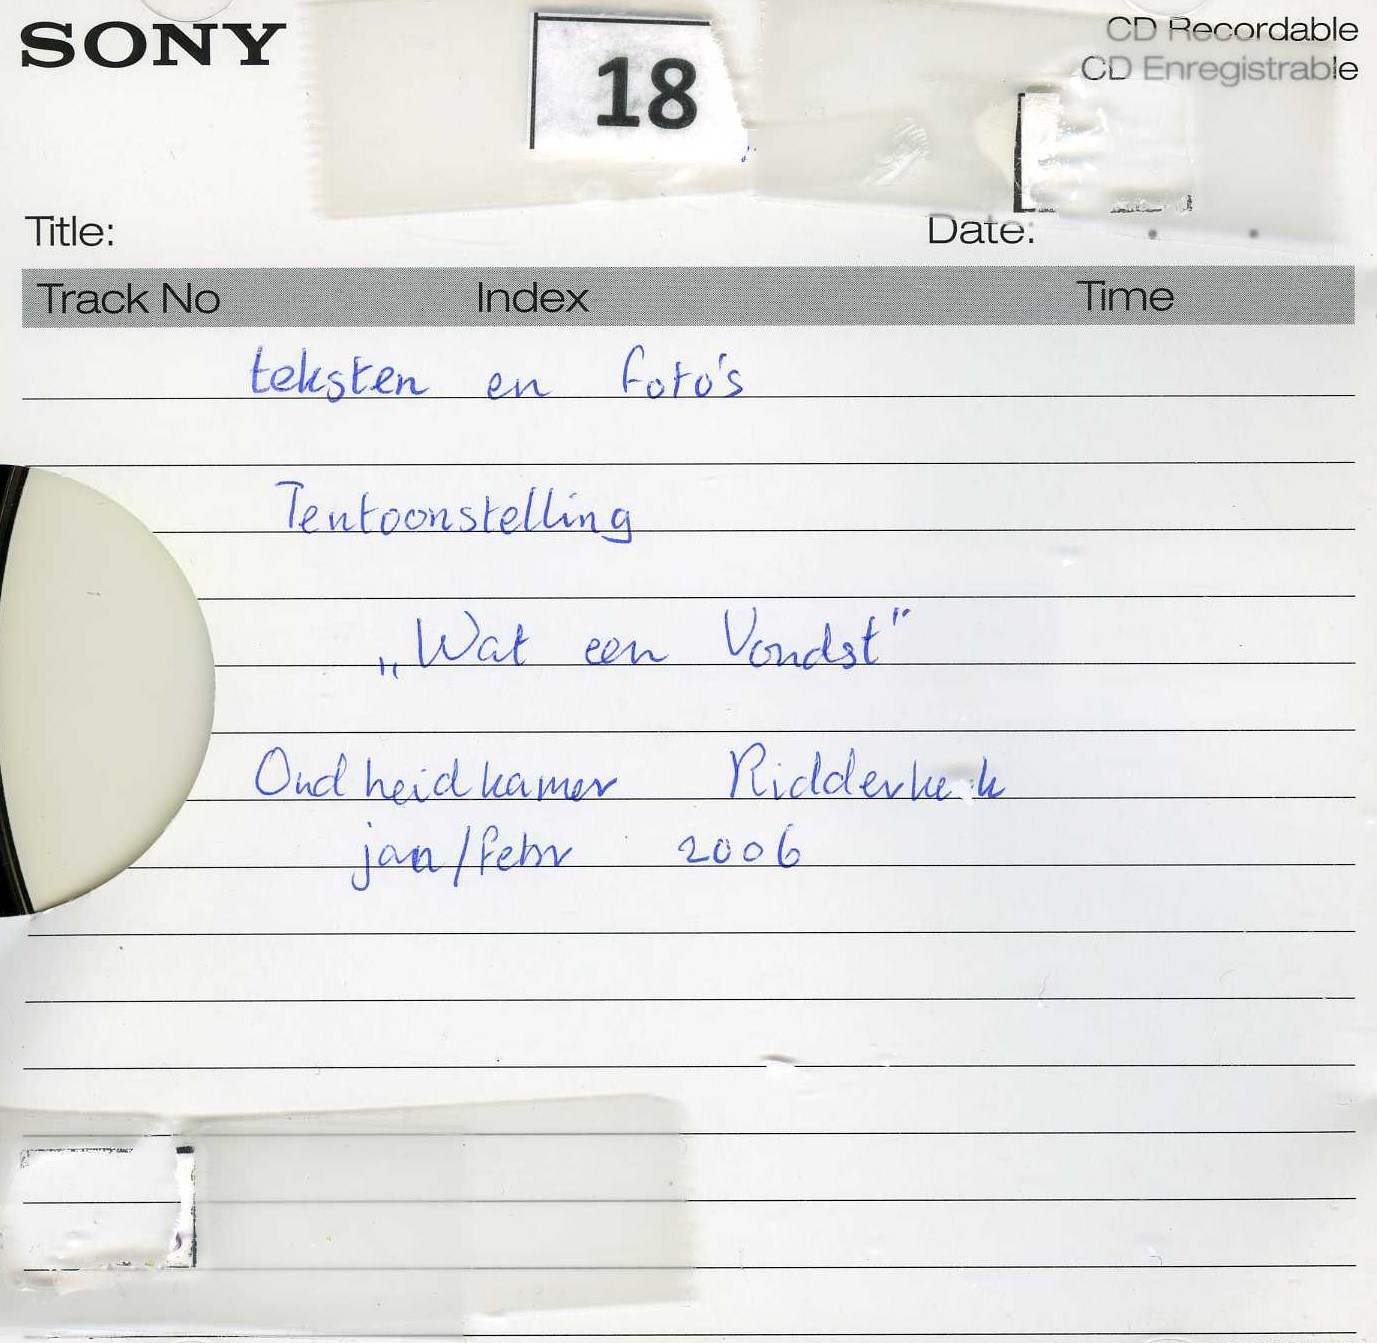 SONY
18
CD Recordable
CD Enregistrable
Title:
Date:
Track No Index Time
teksten en foto's
Tentoonstelling
„Wat een Vondst"
Oudheidkamer Ridderkerk
jan/febr 2006